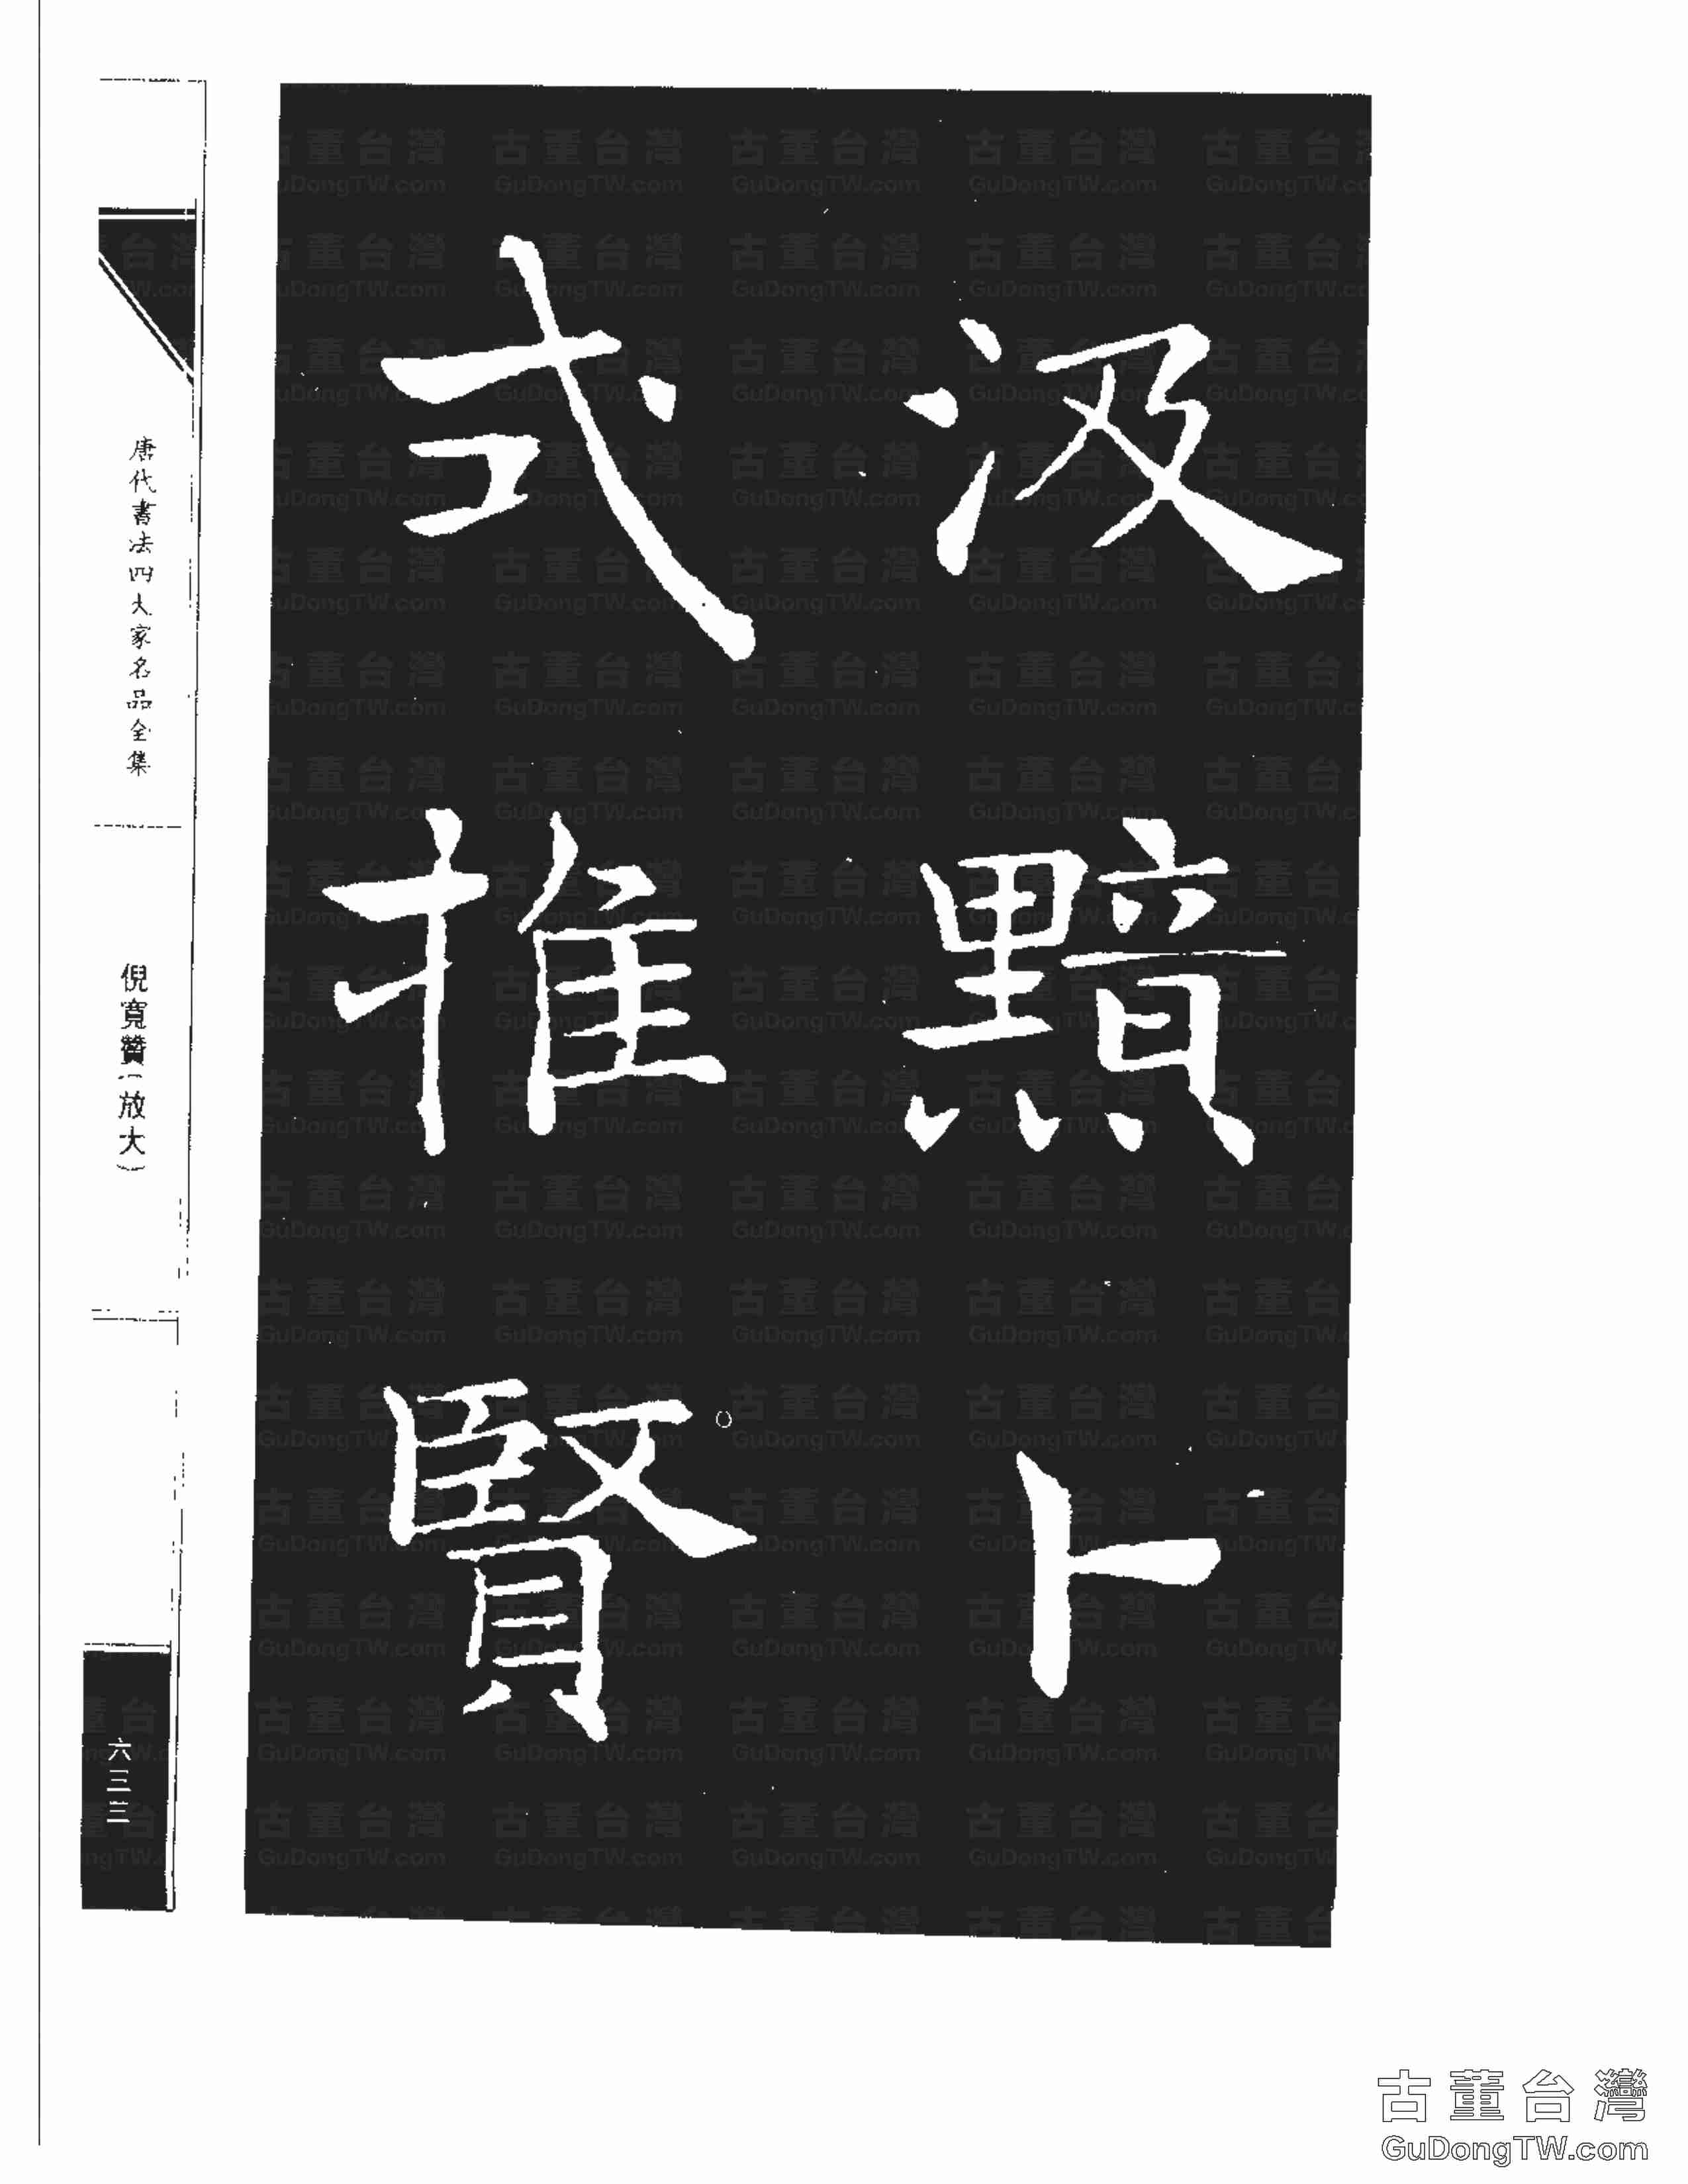 汲黯卜
式推賢
唐代書法四大家名品全集
倪寬贊(放大)
六三三
古董台灣
GuDongTW.com